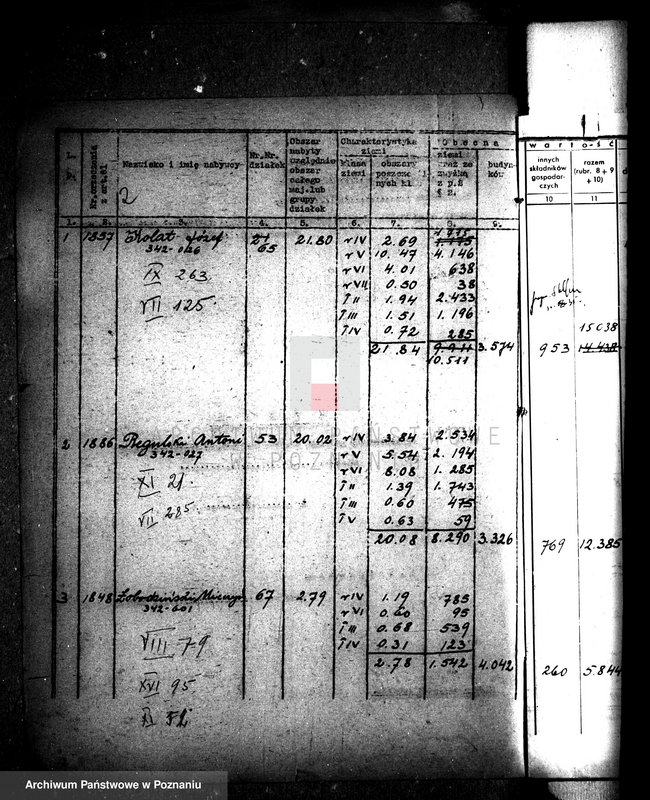 Obecna
wartość
L. p.
Nr. orzeczenia
Nazwisko i imię nabywcy
Nr.Nr. działek
Obszar nabyty względnie obszar całego maj. lub grupy działek
Charakterystyka ziemi
klasa ziemi
obszary poszczególnych kl.
budynków
innych składników gospodarczych
razem (rubr. 8 + 9 + 10)
2
1. 2. 3. 4. 5. 6. 7. 8. 9. 10 11
1 1887 Kolat Józef 65 21.80 r IV 2.69 1.775
342-026 r V 10.47 4.146
IX 263 r VI 4.01 638
r VII 0.50 38
VII 125 Ł II 1.94 2.433
Ł III 1.51 1.196
Ł IV 0.72 285 15038
21.84 9.911 3.574 953 14.438
10.511
2 1886 Regulski Antoni 53 20.02 r IV 3.84 2.534
342-027 r V 5.54 2.194
XI 21 r VI 8.08 1.285
Ł II 1.39 1.743
VII 285 Ł III 0.60 475
Ł V 0.63 59
20.08 8.290 3.326 769 12.385
ARCHIWUM PAŃSTWOWE
W POZNANIU
3 1848 67 2.79 r IV 1.19 785
342-601 r VI 0.60 95
Ł III 0.68 539
VIII 79 Ł IV 0.31 123
2.78 1.542 4.042 260 5.844
XVI 95
XI 52
Archiwum Państwowe w Poznaniu